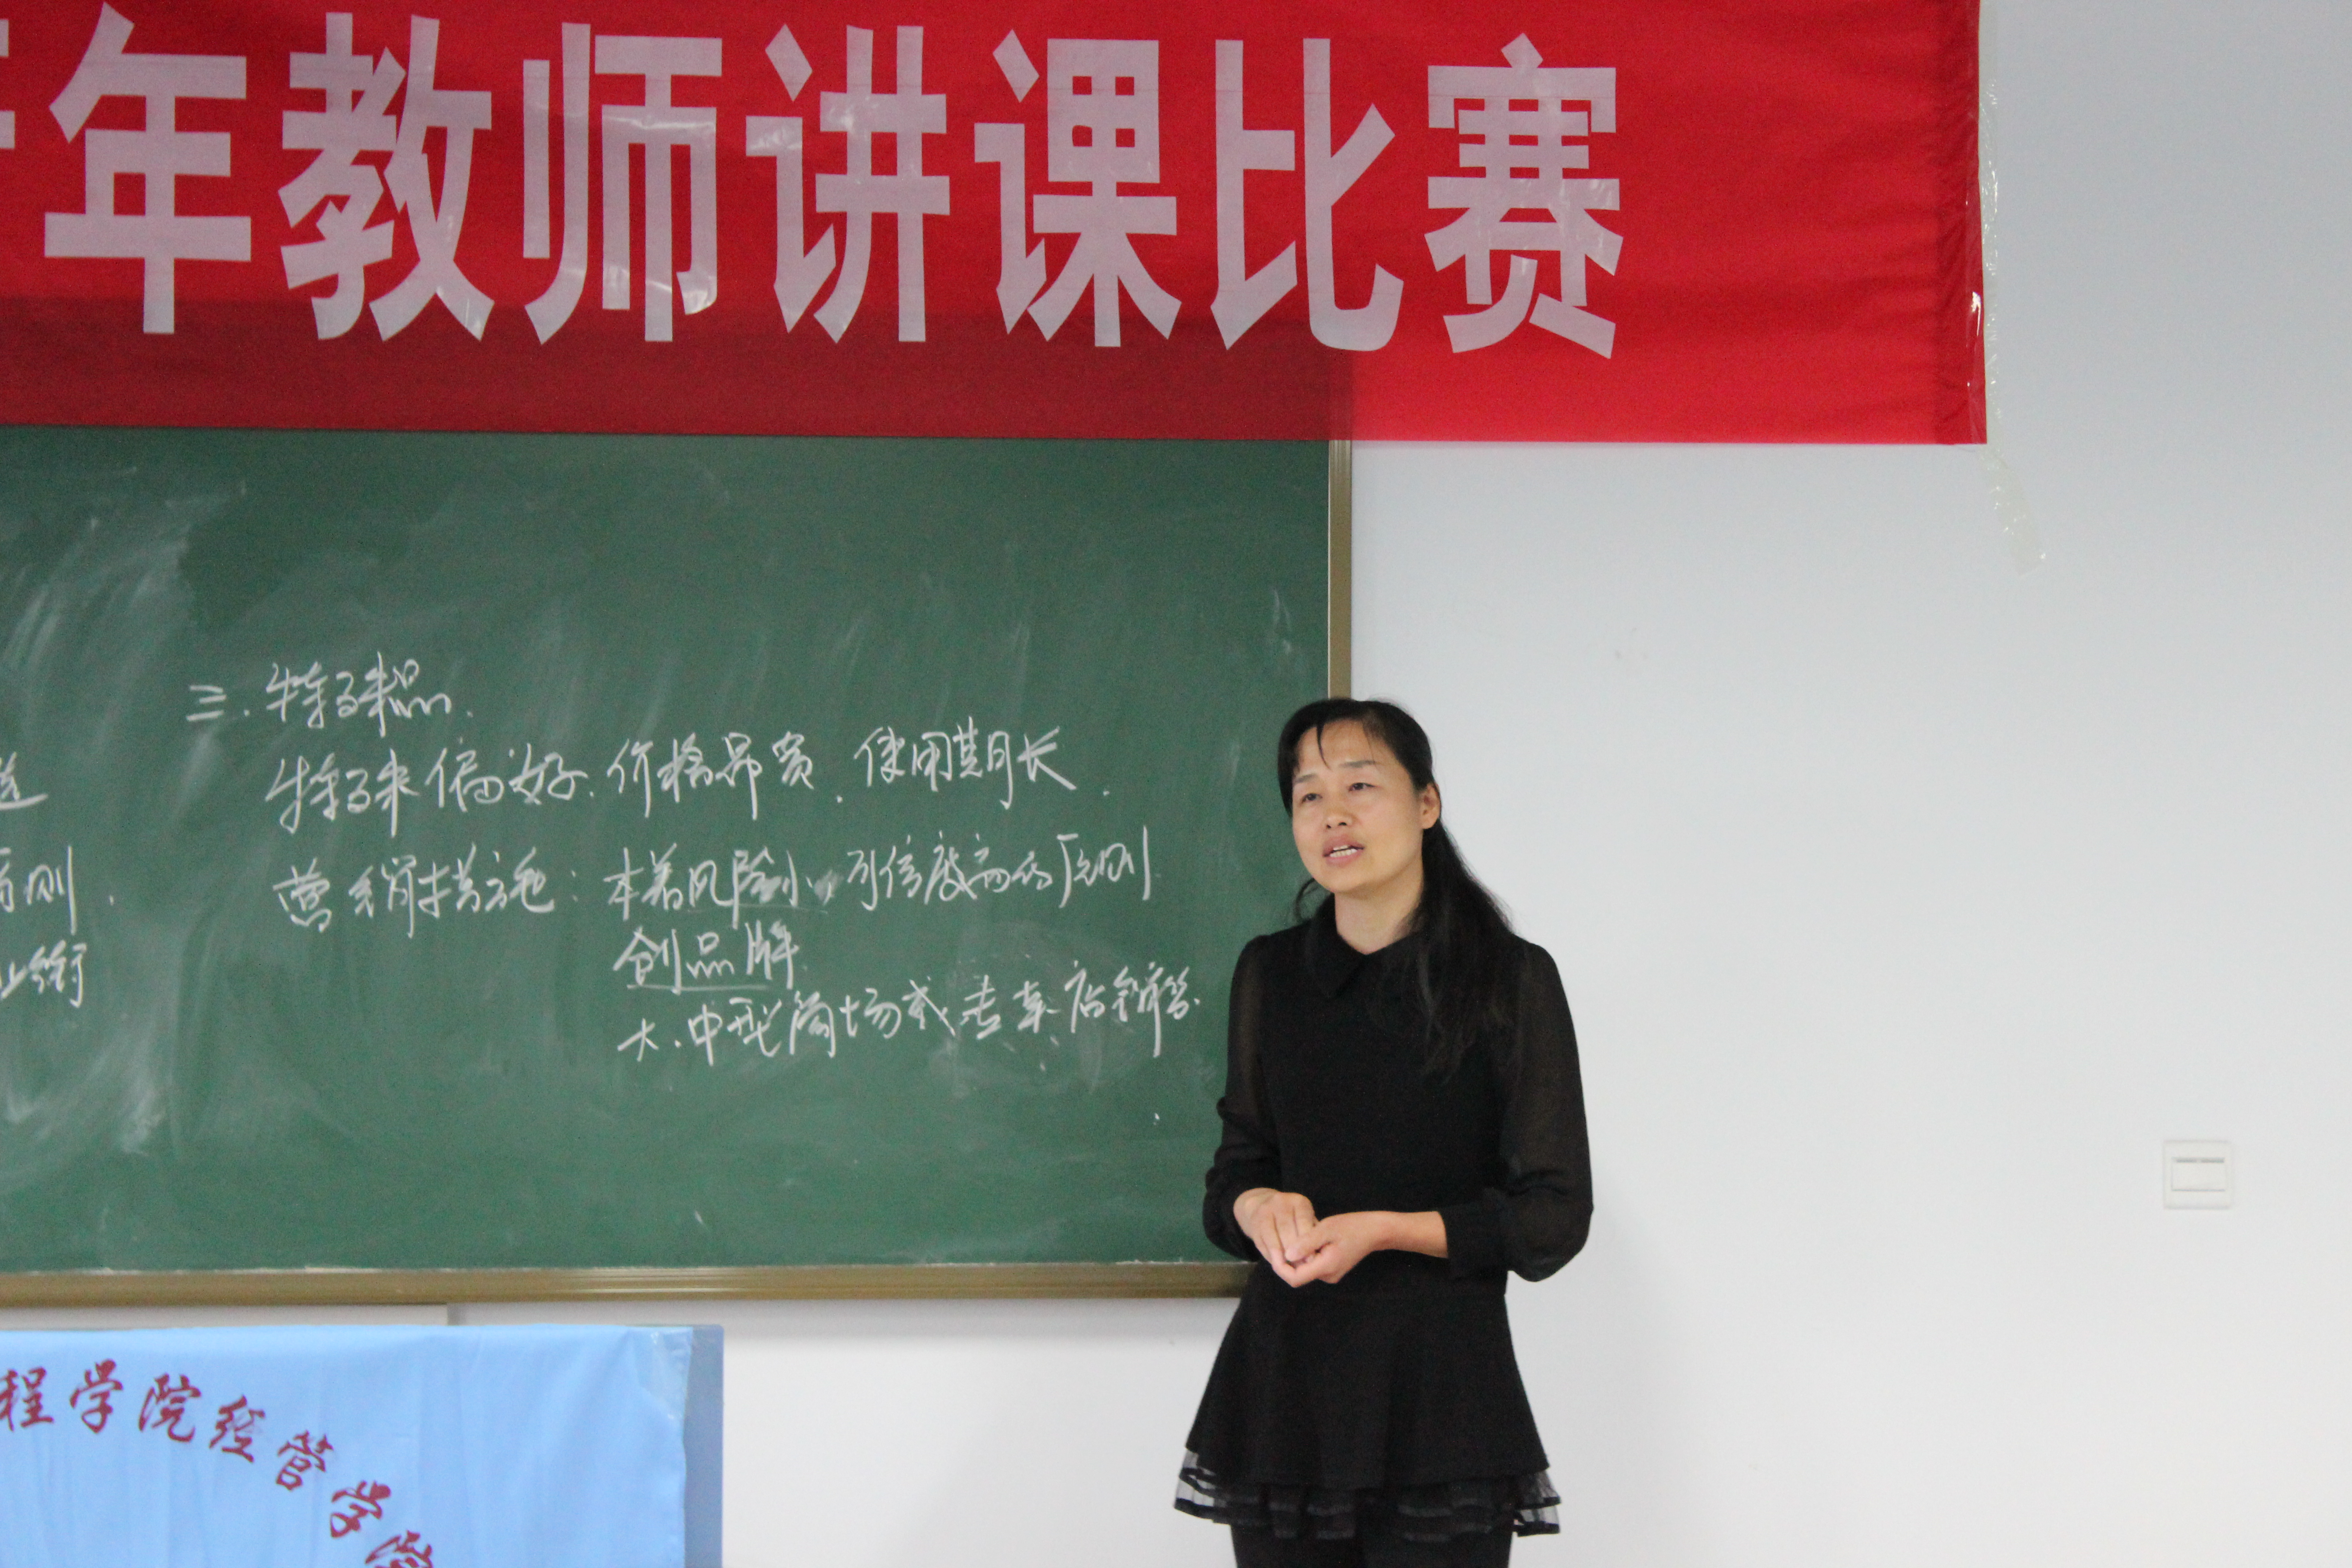 年教师讲课比赛
三.特殊品.
特殊偏好.价格昂贵.使用期长.
则.
衔
营销措施:本着风险小,可信度高的原则
创品牌.
大.中型商场或专卖店销售.
程学院经管学院